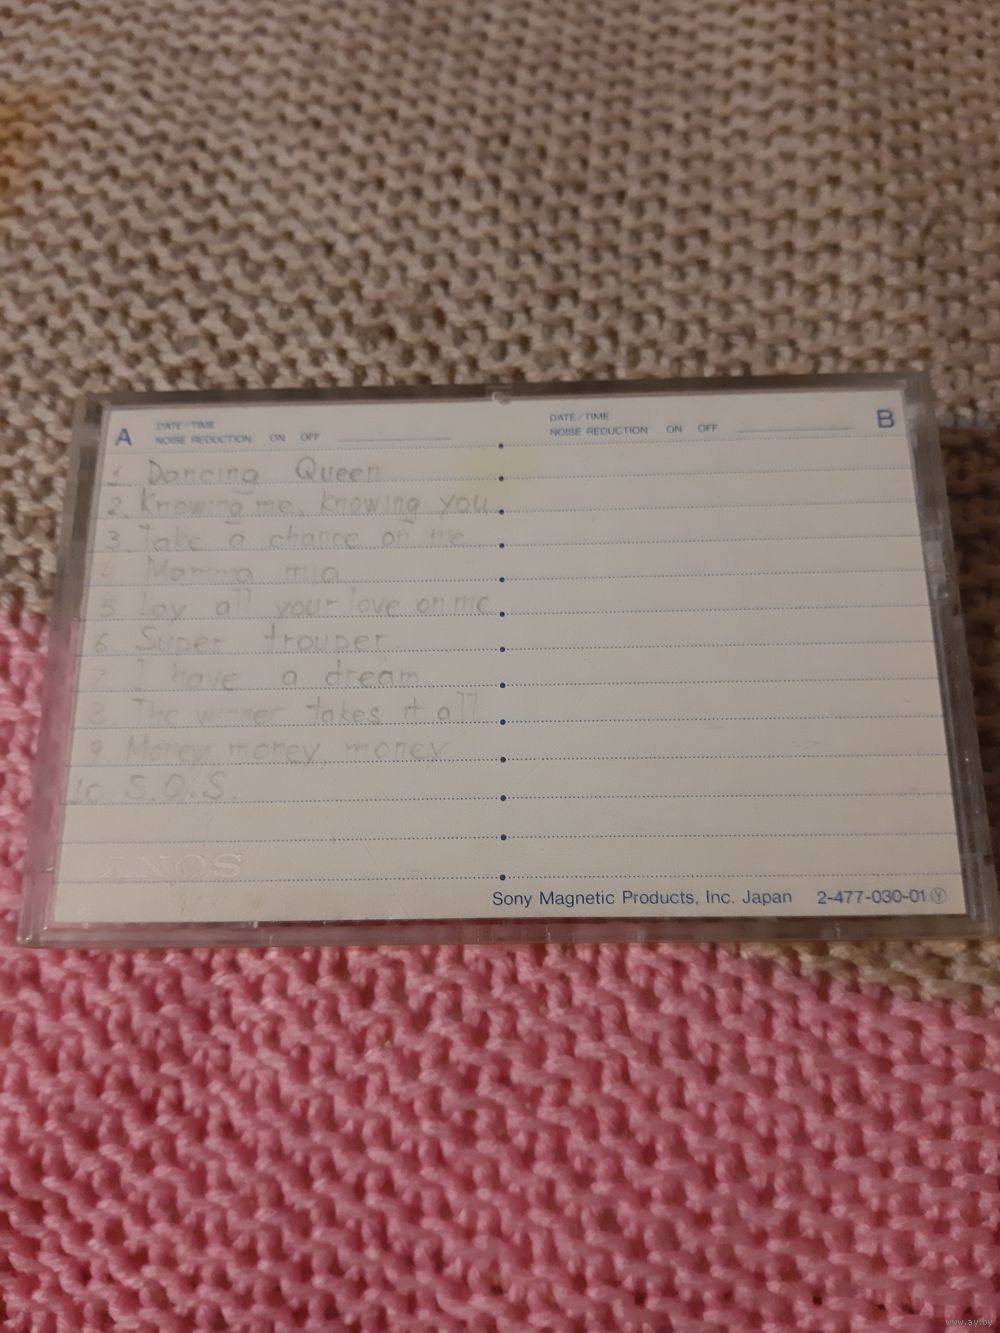 A DATE/TIME
NOISE REDUCTION ON OFF
DATE/TIME B
NOISE REDUCTION ON OFF
1. Dancing Queen
2. Knowing me, knowing you
3. Take a chance on me
4 Mamma mia
5 Lay all your love on me
6. Super trouper
7. I have a dream
8. The winner takes it all
9 Money, money, money
10 S.O.S.
Sony Magnetic Products, Inc. Japan 2-477-030-01 Ⓨ
www.ay.by